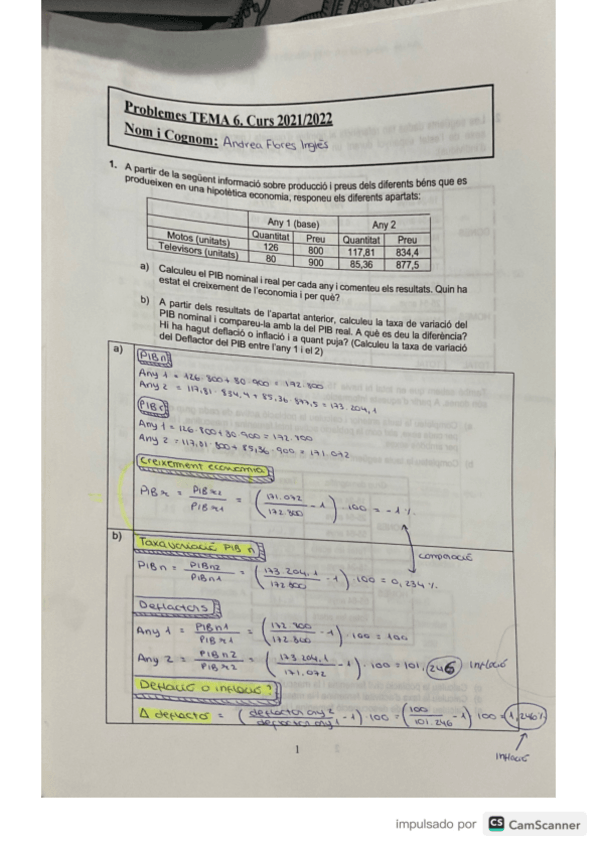 Problemes TEMA 6. Curs 2021/2022
Nom i Cognom: Andrea Flores Inglés
1. A partir de la següent informació sobre producció i preus dels diferents béns que es
produeixen en una hipotètica economia, responeu els diferents apartats:
Any 1 (base) Any 2
Quantitat Preu Quantitat Preu
Motos (unitats) 126 800 117,81 834,4
Televisors (unitats) 80 900 85,36 877,5
a) Calculeu el PIB nominal i real per cada any i comenteu els resultats. Quin ha
estat el creixement de l'economia i per què?
b) A partir dels resultats de l'apartat anterior, calculeu la taxa de variació del
PIB nominal i compareu-la amb la del PIB real. A què es deu la diferència?
Hi ha hagut deflació o inflació i a quant puja? (Calculeu la taxa de variació
del Deflactor del PIB entre l'any 1 i el 2)
a) PIBn
Any 1 = 126 · 800 + 80 · 900 = 172.800
Any 2 = 117,81 · 834,4 + 85,36 · 877,5 = 173.204,1
Any 1 = 126 · 800 + 80 · 900 = 172.800
Any 2 = 117,81 · 800 + 85,36 · 900 = 171.072
Creixement economia
PIBr = PIBr2 / PIBr1 = (171.072 / 172.800 - 1) · 100 = -1 %
comparació
b) Taxa variació PIB n
PIBn = PIBn2 / PIBn1 = (173.204,1 / 172.800 - 1) · 100 = 0,234 %
Deflactors
Any 1 = PIBn1 / PIBr1 = (172.800 / 172.800 - 1) · 100 = 100
Any 2 = PIBn2 / PIBr2 = (173.204,1 / 171.072 - 1) · 100 = 101,246 inflació
Deflació o inflació?
Δ deflactor = (deflactor any 2 / deflactor any 1 - 1) · 100 = (100 / 101.246 - 1) 100 = 1,246%
inflació
1
impulsado por CS CamScanner